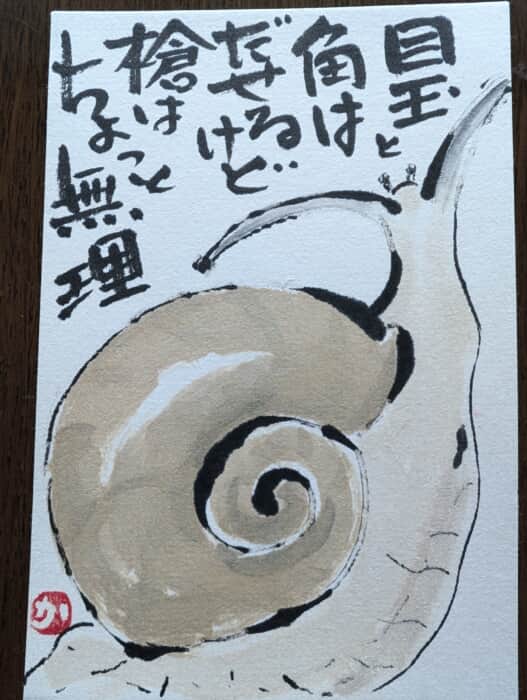 目玉と
角は
だせるけど
槍は
ちょっと
無理